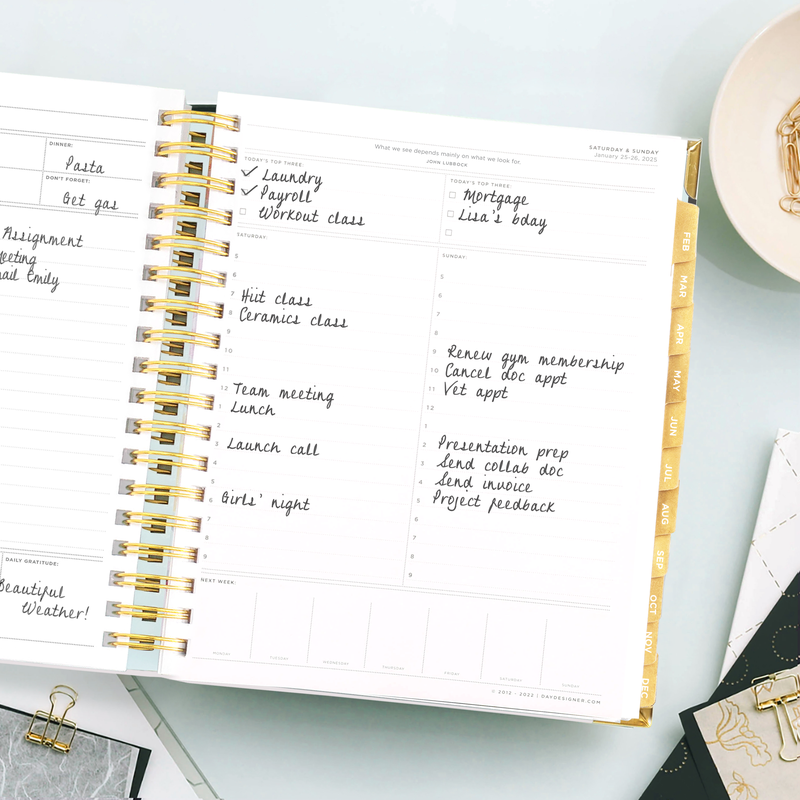 DINNER:
Pasta
DON'T FORGET:
Get gas
Assignment
Meeting
Email Emily
DAILY GRATITUDE:
Beautiful
Weather!
What we see depends mainly on what we look for.
JOHN LUBBOCK
SATURDAY & SUNDAY
January 25-26, 2025
TODAY'S TOP THREE:
Laundry
Payroll
Workout class
SATURDAY:
5
6
7 Hiit class
8 Ceramics class
9
10
11
12 Team meeting
1 Lunch
2
3 Launch call
4
5
6 Girls' night
7
8
9
TODAY'S TOP THREE:
Mortgage
Lisa's bday
SUNDAY:
5
6
7
8
9 Renew gym membership
10 Cancel doc appt
11 Vet appt
12
1
2 Presentation prep
3 Send collab doc
4 Send invoice
5 Project feedback
6
7
8
9
NEXT WEEK:
MONDAY
TUESDAY
WEDNESDAY
THURSDAY
FRIDAY
SATURDAY
SUNDAY
© 2012 - 2025 | DAYDESIGNER.COM
FEB
MAR
APR
MAY
JUN
JUL
AUG
SEP
OCT
NOV
DEC